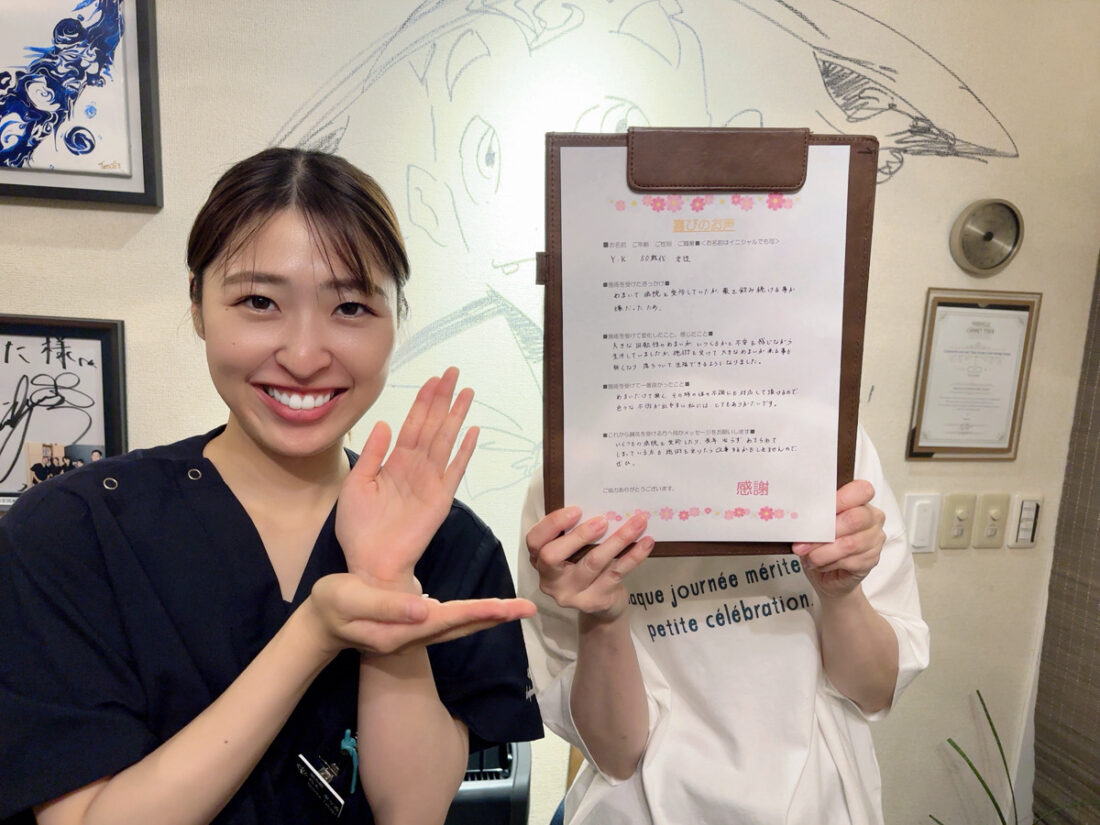 喜びのお声
■お名前 ご年齢 ご性別 ご職業■<お名前はイニシャルでも可>
Y.K 50歳代 女性
■施術を受けたきっかけ■
めまいで病院を受診していたが、薬を飲み続ける事が
嫌だったため。
■施術を受けて変化したこと、感じたこと■
大きな回転性のめまいが、いつくるかと不安を感じながら
生活していましたが、施術を受けて大きなめまいが来る事が
無くなり落ちついて生活できるようになりました。
■施術を受けて一番良かったこと■
めまいだけで無く、その時の体の不調にも対応して頂けるので
色々な不調が出やすい私には とてもありがたいです。
■これから施術を受ける方へ何かメッセージをお願いします■
いくつもの病院を受診したり、長年 治らず あきらめて
しまっている方も施術を受けたら改善するかもしれませんので
ぜひ。
ご協力ありがとうございます。
感謝
aque journée mérite
petite célébration.
た 様